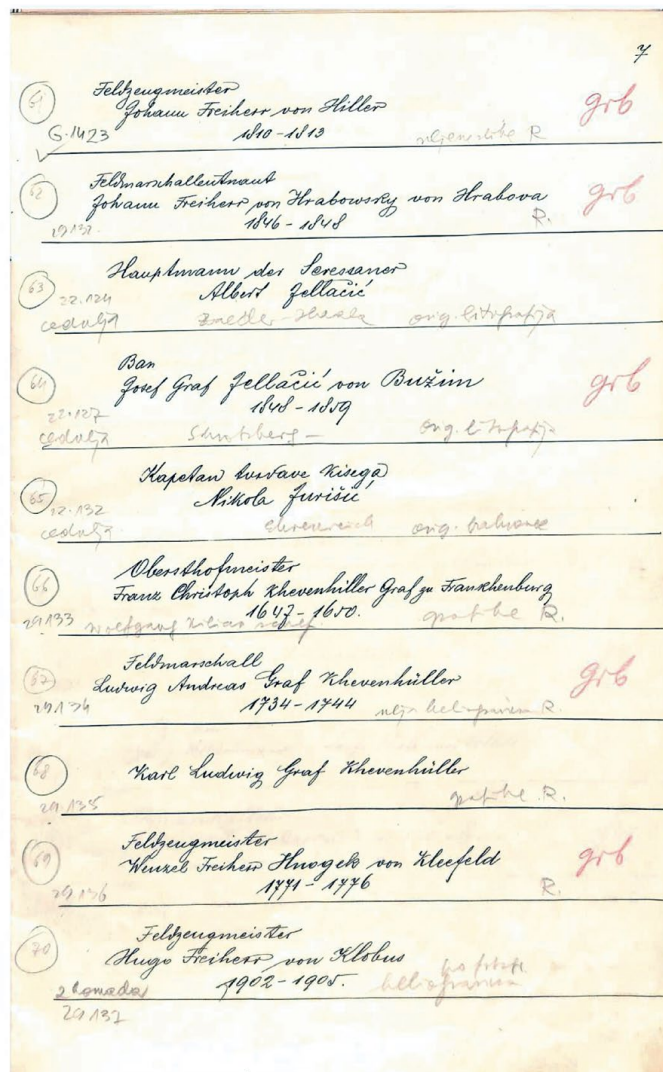 7
61 Feldzeugmeister
Johann Freiherr von Hiller grb
G.1423 1810-1813 R
62 Feldmarschalleutnant
Johann Freiherr von Hrabowsky von Hrabova grb
1846-1848 R.
63 Hauptmann der Seressaner
22.124 Albert Jellačić
cedulja orig. litografija
Ban
64 Josef Graf Jellačić von Bužim grb
22.127 1848-1859
cedulja orig. litografija
Kapetan tvrđave Kisega
65 Nikola Jurišić
12.132
cedulja orig. bakrorez
Obersthofmeister
66 Franz Christoph Khevenhiller Graf zu Frankhenburg
29133 1647-1650. R.
Wolfgang Kilian
Feldmarschall
67 Ludwig Andreas Graf Khevenhüller grb
29.134 1734-1744 R.
68 Karl Ludwig Graf Khevenhüller
29.135 R.
Feldzeugmeister
69 Wenzel Freiherr Hnogek von Kleefeld grb
29.136 1771-1776 R.
Feldzeugmeister
70 Hugo Freiherr von Klobus
1902-1905.
2 komada
29.137